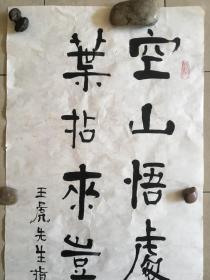 空山悟處
葉拈來豈
王虎先生指